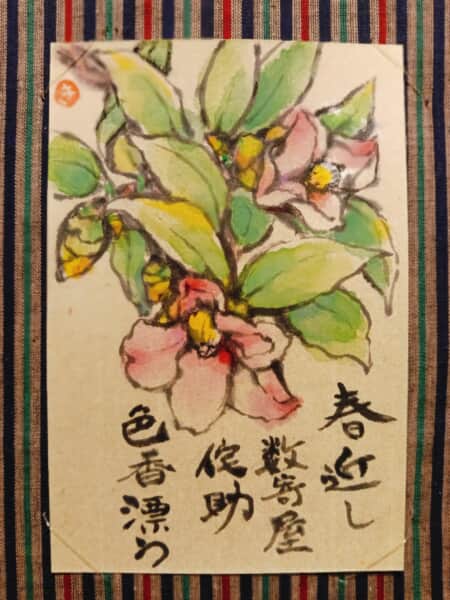 春近し
数寄屋
侘助
色香漂う